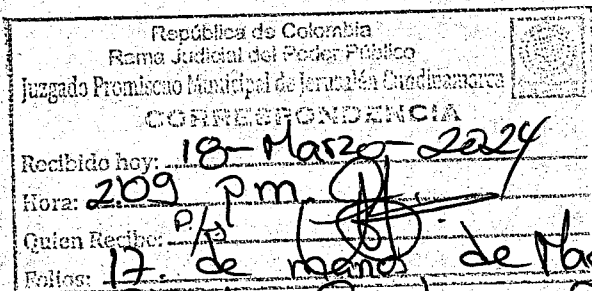 República de Colombia
Rama Judicial del Poder Público
Juzgado Promiscuo Municipal de Jerusalén Cundinamarca
CORRESPONDENCIA
Recibido hoy: 18-Marzo-2024
Hora: 2:09 pm.
Quien Recibe: P/
Folios: 17. de manos de Ma